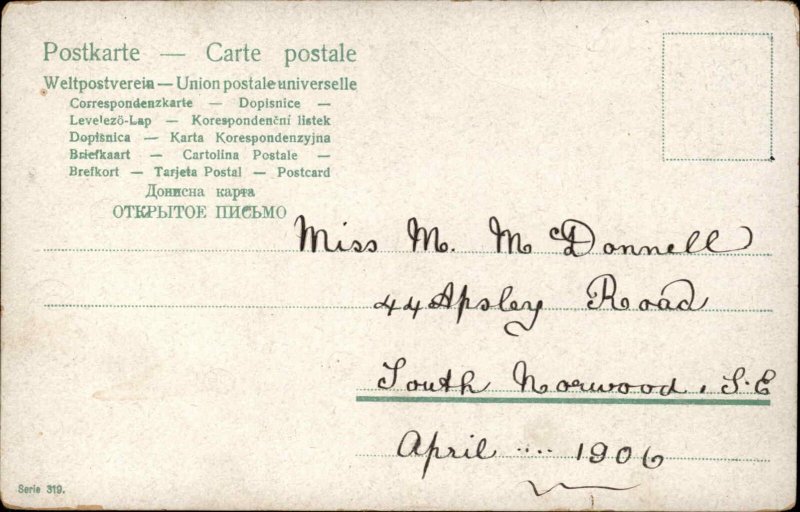 Postkarte — Carte postale
Weltpostverein — Union postale universelle
Correspondenzkarte — Dopisnice —
Levelező-Lap — Korespondenční listek
Dopisnica — Karta Korespondenzyjna
Briefkaart — Cartolina Postale —
Brefkort — Tarjeta Postal — Postcard
Дописна карта
ОТКРЫТОЕ ПИСЬМО
Miss M. McDonnell
44 Apsley Road
South Norwood. S.E
April .... 1906
Serie 319.